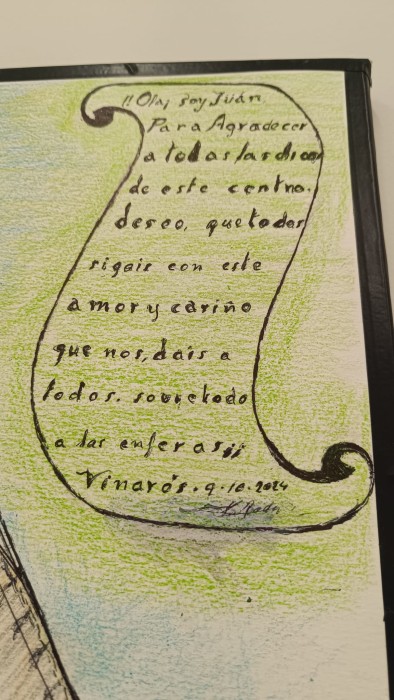 !!Ola, soy Juán.
Para Agradecer
a todas las dicas
de este centro.
deseo, que todas
sigais con este
amor y cariño
que nos, dais a
todos. sovretodo
a las enferas¡¡
Vinarós. 9-10-2024